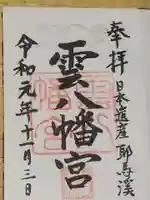 奉拝 日本遺産 耶馬渓
雲八幡宮
令和元年十一月三日